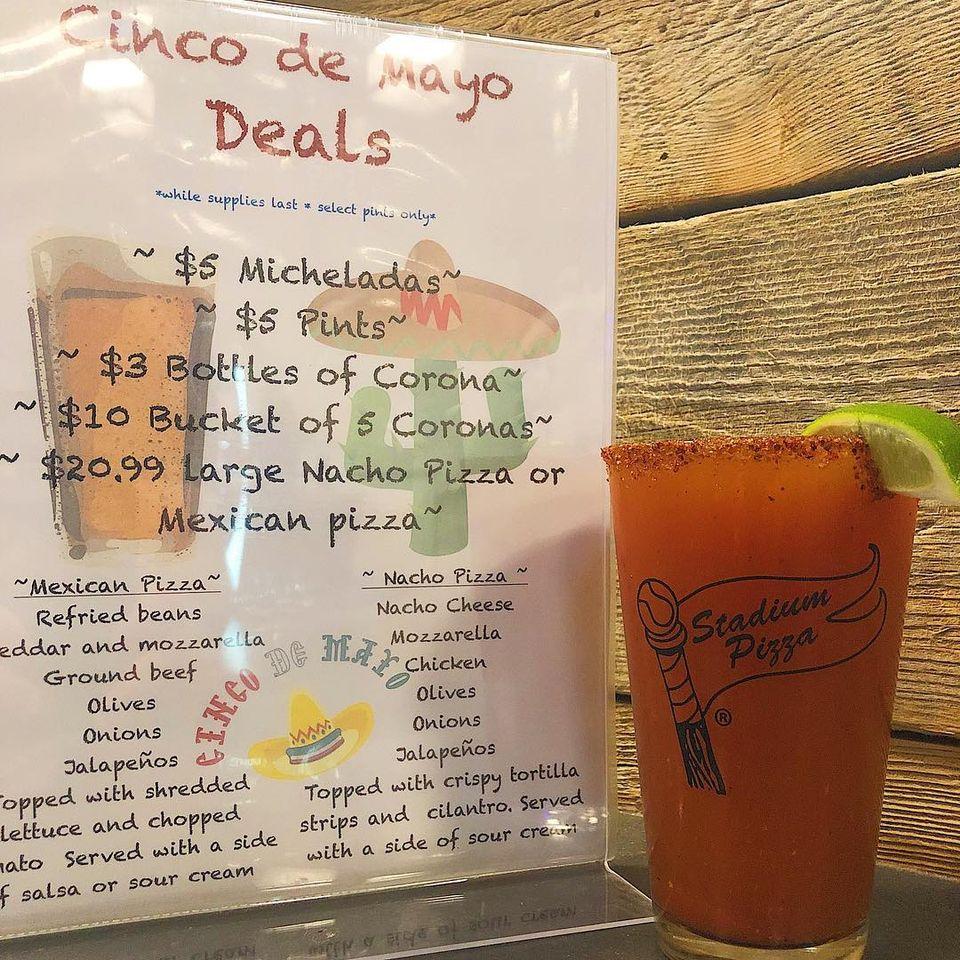 Cinco de Mayo
Deals
*while supplies last * select pints only*
~ $5 Micheladas~
~ $5 Pints~
~ $3 Bottles of Corona~
~ $10 Bucket of 5 Coronas~
~ $20.99 large Nacho Pizza or
Mexican pizza~
~Mexican Pizza~
Refried beans
eddar and mozzarella
Ground beef
Olives
Onions
Jalapeños
Topped with shredded
lettuce and chopped
mato Served with a side
f salsa or sour cream
~ Nacho Pizza ~
Nacho Cheese
Mozzarella
Chicken
Olives
Onions
Jalapeños
Topped with crispy tortilla
strips and cilantro. Served
with a side of sour cream
CINCO DE MAYO
Stadium
Pizza
®